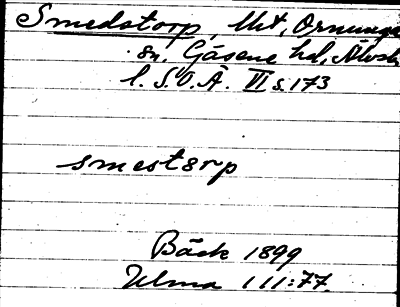 Smedstorp, Hht, Ornunga
sn. Gäsene hd, Älvsb
l. S.O.Ä. VI s. 173
smestørp
Bäck 1899
Ulma 111:77.